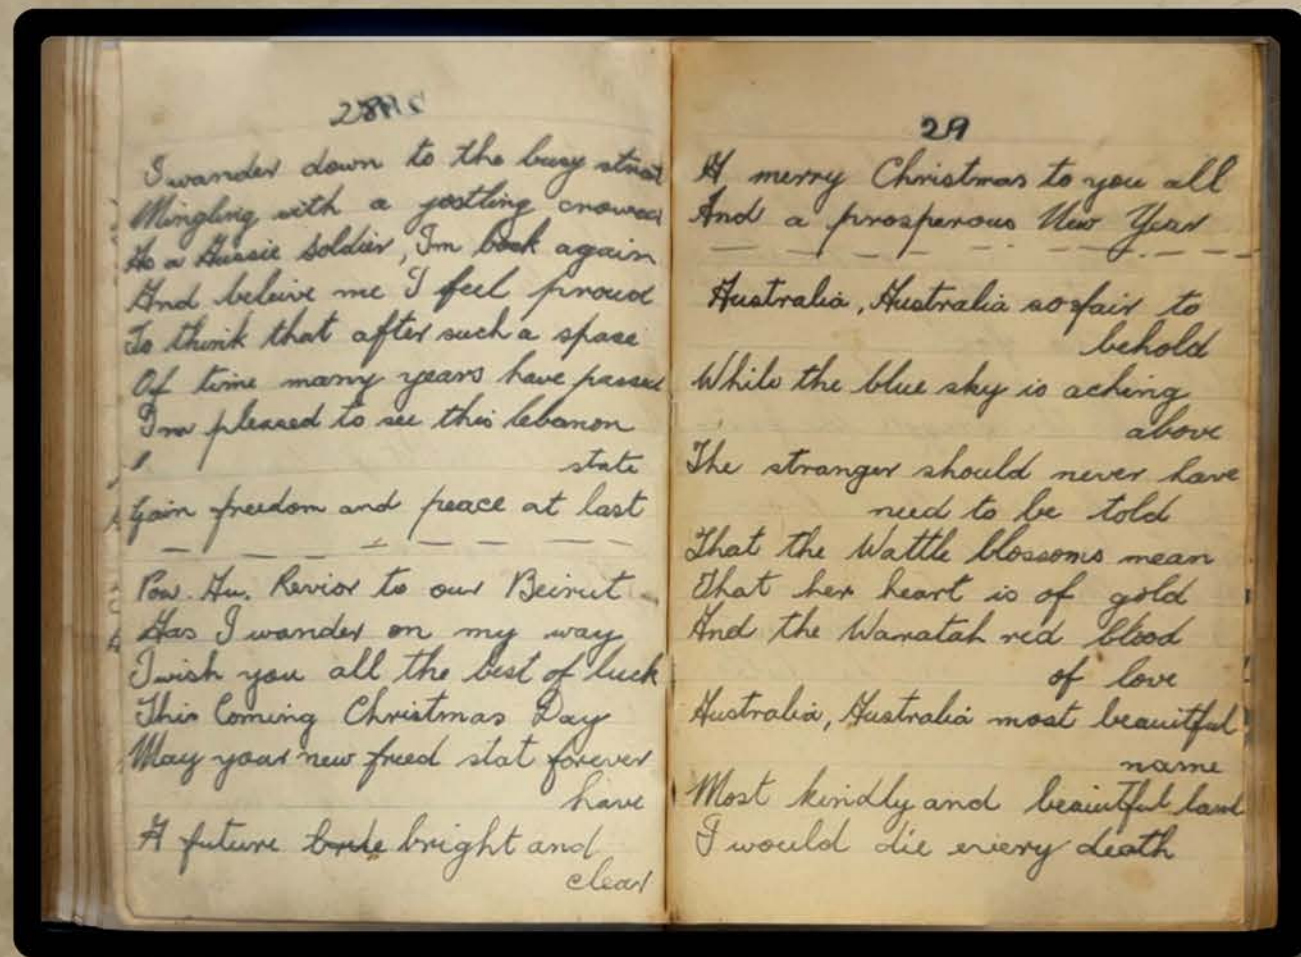 28
I wander down to the busy street
Mingling with a jostling crowed
As a Aussie Soldier, Im back again
And beleive me I feel proud
To think that after such a space
Of time many years have passed
I'm pleased to see this lebanon
state
Gain freedom and peace at last
Pow. Au. Revior to our Beirut
Has I wander on my way
I wish you all the best of luck
This Coming Christmas Day
May your new freed stat forever
have
A future bright and
clear
29
A merry Christmas to you all
And a prosperous New Year
Australia, Australia so fair to
behold
While the blue sky is aching
above
The stranger should never have
need to be told
That the Wattle blossoms mean
That her heart is of gold
And the Waratah red blood
of love
Australia, Australia most beauitful
name
Most kindly and beauitful land
I would die every death